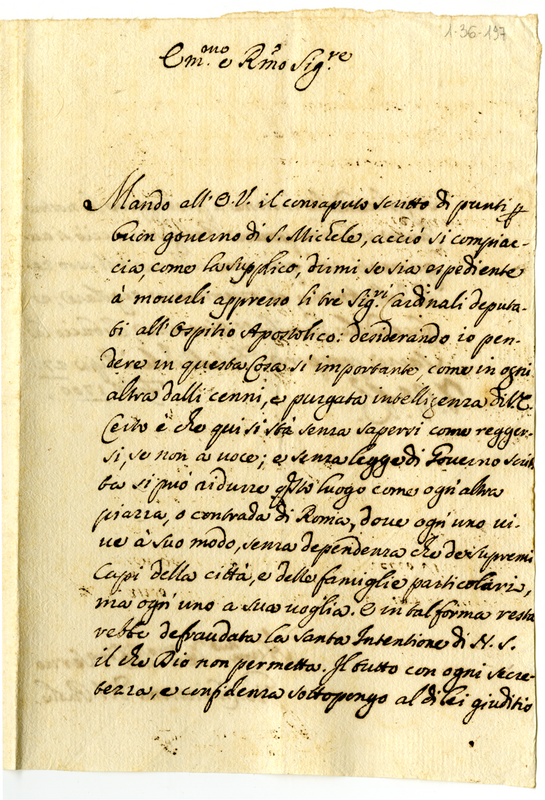 1-36-197
Em.mo e R.mo Sig.re
Mando all'E.V. il consaputo scritto di punti p
buon governo di S. Michele, acciò si compiac-
cia, come la supplico, dirmi se sia espediente
à moverli appresso li trè Sig.ri Cardinali deputa-
ti all'Ospitio Apostolico: desiderando io pen-
dere in questa Cosa si importante, come in ogni
altra dalli cenni, e purgata intelligenza di V.E.
Certo è che qui si stà senza sapersi come regger-
si, se non a voce; e senza legge di Governo scrit-
ta si può ridurre qsto luogo come ogn'altra
piazza, o contrada di Roma, dove ogn'uno vi-
ve à suo modo, senza dependenza che de supremi
Capi della città, e delle famiglie particolari,
ma ogn'uno a sua voglia. E in tal forma resta
rebbe defraudata la Santa Intentione di N. S.
il che Dio non permetta. Il tutto con ogni secre-
tezza, e confidenza sottopongo al di lei giuditio